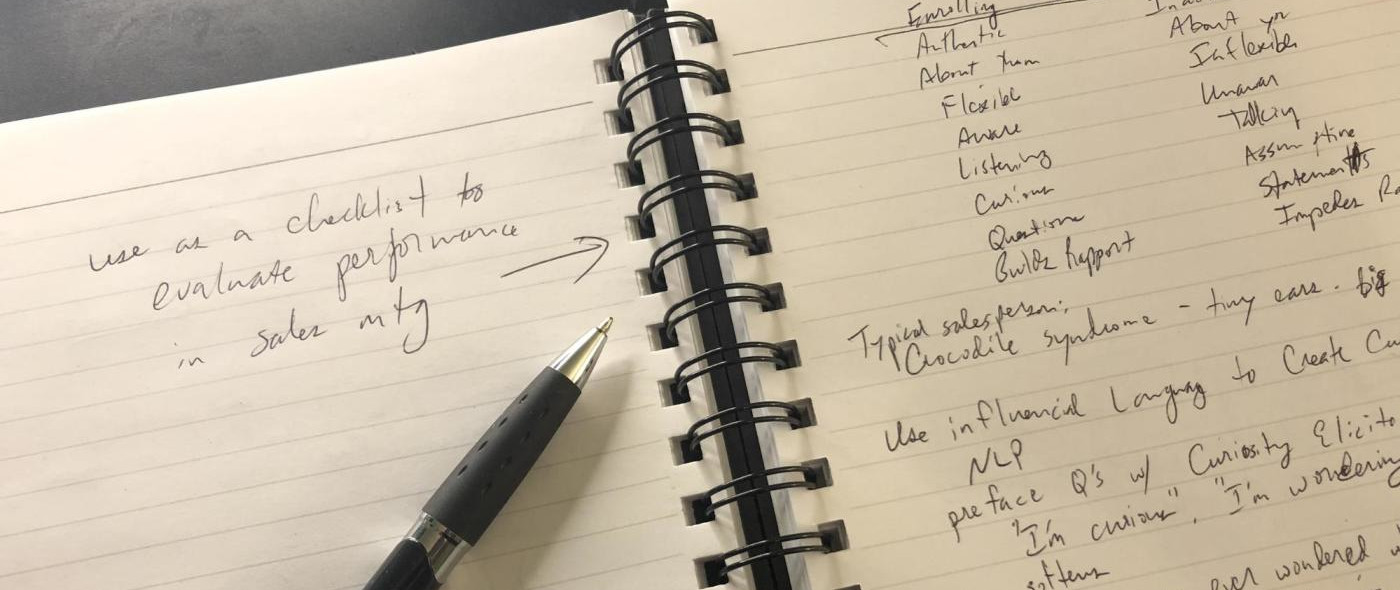 use as a checklist to
evaluate performance
in sales mtg
Enrolling
Authentic
About them
Flexible
Aware
Listening
Curious
Questions
Builds Rapport
About yr
Inflexible
Unaware
Talking
Assumptive
Statements
Impedes
Typical salesperson:
Crocodile syndrome - tiny ears. big
Use influencial Language to Create
NLP
preface Q's w/ Curiosity
"I'm curious", "I'm wondering
softens
ever wondered